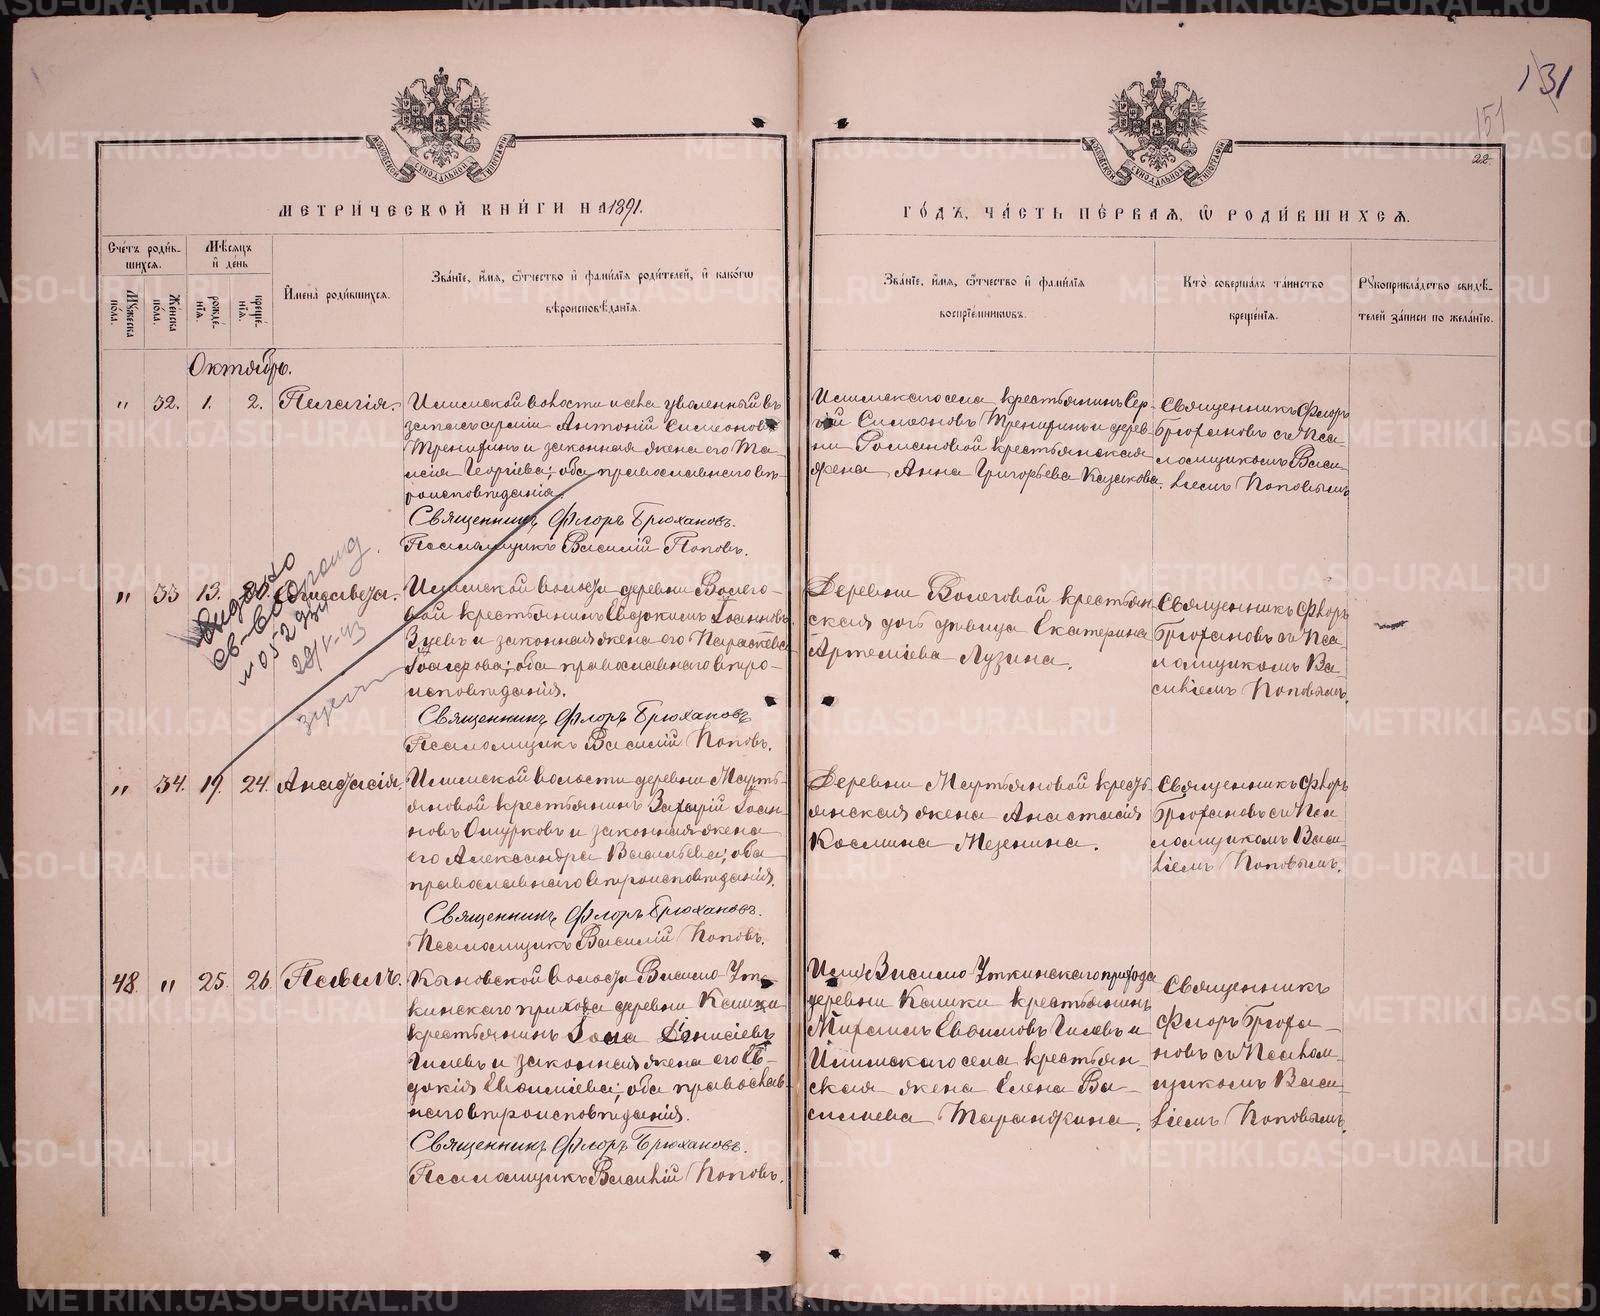 131
151
22.
МОСКОВСКОЙ СѴНОДАЛЬНОЙ ТИПОГРАФІИ
МОСКОВСКОЙ СѴНОДАЛЬНОЙ ТИПОГРАФІИ
МЕТРИ́ЧЕСКОЙ КНИ́ГИ НА 1891.
ГО́ДЪ, ЧА́СТЬ ПЕ́РВАѦ, Ѽ РОДИ́ВШИХСѦ.
Сче́тъ роди́в-
шихсѧ.
Мꙋжеска по́ла.
Же́нска по́ла.
Мѣ́сѧцъ
и҆ де́нь
рожде́-
нїѧ.
креще́-
нїѧ.
И҆мена̀ роди́вшихсѧ.
Зва́нїе, и҆́мѧ, ѻ҆́тчество и҆ фамилїѧ роди́телей, и҆ како́гѡ
вѣроисповѣ́данїѧ.
Зва́нїе, и҆́мѧ, ѻ҆́тчество и҆ фами́лїѧ
воспрїе́мниковъ.
Кто̀ соверша́лъ та́инство
креще́нїѧ.
Рꙋкоприкла́дство свидѣ́-
телей за́писи по жела́нїю.
Октябрь.
" 32. 1. 2. Пелагія.
Илимской волости и села уволенный въ
запасъ арміи Антоній Симеоновъ
Тренихинъ и законная жена его Та-
исія Георгіева; оба православнаго вѣ-
роисповѣданія.
Священникъ Флоръ Брюхановъ.
Псаломщикъ Василій Поповъ.
Илимскаго села крестьянинъ Сер-
гій Симеоновъ Тренихинъ и дерев-
ни Романовой крестьянская
жена Анна Григорьева Казакова.
Священникъ Флоръ
Брюхановъ съ Пса-
ломщикомъ Васи-
ліемъ Поповымъ.
" 33 13. Елисавета.
Илимской волости деревни Волего-
вой крестьянинъ Евдокимъ Іоанновъ
Зуевъ и законная жена его Параскева
оба православнаго вѣро-
исповѣданія.
Священникъ Флоръ Брюхановъ
Псаломщикъ Василій Поповъ.
Деревни Волеговой крестьян-
ская дочь дѣвица Екатерина
Артеміева Лузина.
Священникъ Флоръ
Брюхановъ съ Пса-
ломщикомъ Ва-
силіемъ Поповымъ.
Выдано
св-во
28/V-43
" 34. 19. 24. Анастасія.
Илимской волости деревни Марть-
яновой крестьянинъ Захарій Іоан-
новъ Ошурковъ и законная жена
его Александра Васильева; оба
православнаго вѣроисповѣданія.
Священникъ Флоръ Брюхановъ.
Псаломщикъ Василій Поповъ.
Деревни Мартьяновой кресть-
янская жена Анастасія
Космина Мезенина.
Священникъ Флоръ
Брюхановъ съ Пса-
ломщикомъ Васи-
ліемъ Поповымъ.
48. " 25. 26. Павелъ.
Кыновской волости Висимо-Ут-
кинскаго прихода деревни Кашки
крестьянинъ Іона Діонисіевъ
Гилевъ и законная жена его Ев-
докія Евѳиміева; оба православ-
наго вѣроисповѣданія.
Священникъ Флоръ Брюхановъ.
Псаломщикъ Василій Поповъ.
Висимо-Уткинскаго прихода
деревни Кашки крестьянинъ
Евѳимовъ Гилевъ и
Илимскаго села крестьян-
ская жена Елена Ва-
силиева Таранжина.
Священникъ
Флоръ Брюха-
новъ съ Псалом-
щикомъ Васи-
ліемъ Поповымъ.
METRIKI.GASO-URAL.RU